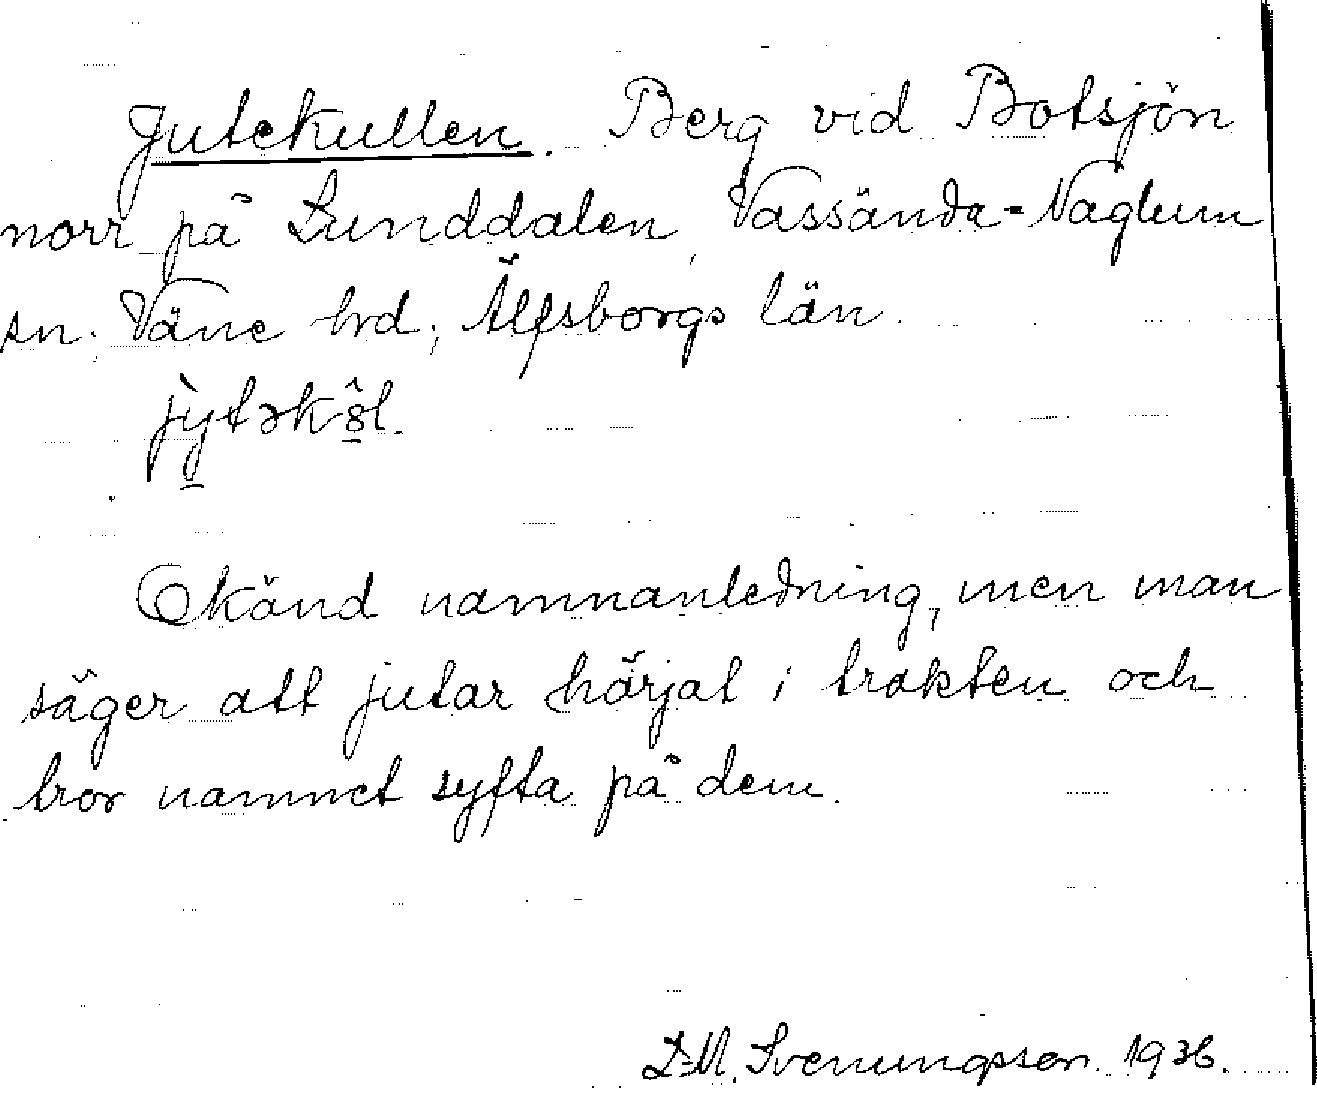 Jutekullen. Berg vid Botsjön
norr på Lunddalen, Vassända-Naglum
sn. Väne hrd, Älfsborgs län.
Okänd namnanledning, men man
säger att jutar härjat i trakten och
tror namnet syfta på dem.
Svenungsson 1936.